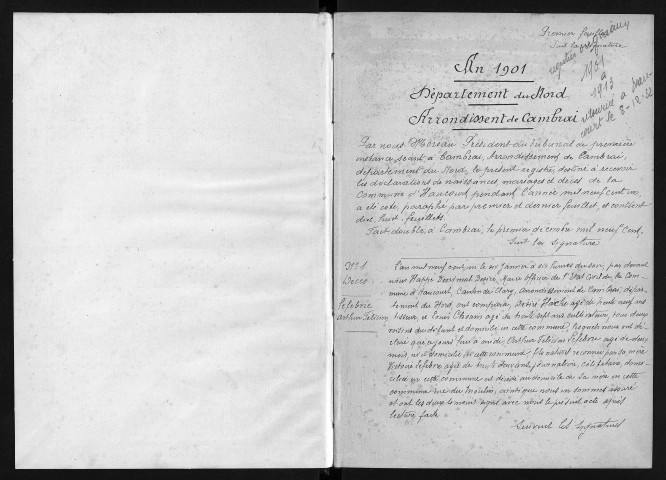 Premier feuillet
Suit la signature
registre
1901
à
1913
An 1901
Département du Nord
Arrondissent de Cambrai
Par nous Moreau Président du Tribunal de première
instance séant à Cambrai, Arrondissement de Cambrai,
département du Nord, le présent registre, destiné à recevoir
les déclarations de naissances, mariages et décès de la
Commune d'Haucourt, pendant l'année mil neuf cent un
a été coté, paraphé par premier et dernier feuillet, et contient
dix huit feuillets.
Fait double, à Cambrai, le premier décembre mil neuf cent,
Suit la signature
N° 1
Décès
Lefebvre
Arthur Félicien
L'an mil neuf cent un, le six janvier à six heures du soir, par devant
nous Désiré, Maire officier de l'Etat Civil de la Com-
mune d'Haucourt, Canton de Clary, arrondissement de Cambrai, dépar-
tement du Nord, ont comparu, Désiré âgé de trente neuf ans
tisseur, et Louis âgé de trente sept ans cultivateur, tous deux
voisins du défunt et domiciliés en cette commune, lesquels nous ont dé-
claré que aujourd'hui à midi, Arthur Félicien Lefebvre âgé de deux
mois, né et domicilié en cette commune, fils naturel reconnu par sa mère
Lefebvre, âgée de ans, journalière, célibataire, domi-
ciliée en cette commune est décédé au domicile de sa mère en cette
commune rue du Moulin, ainsi que nous nous en sommes assuré
et ont les deux témoins signé avec nous le présent acte après
lecture faite
Suivent les signatures